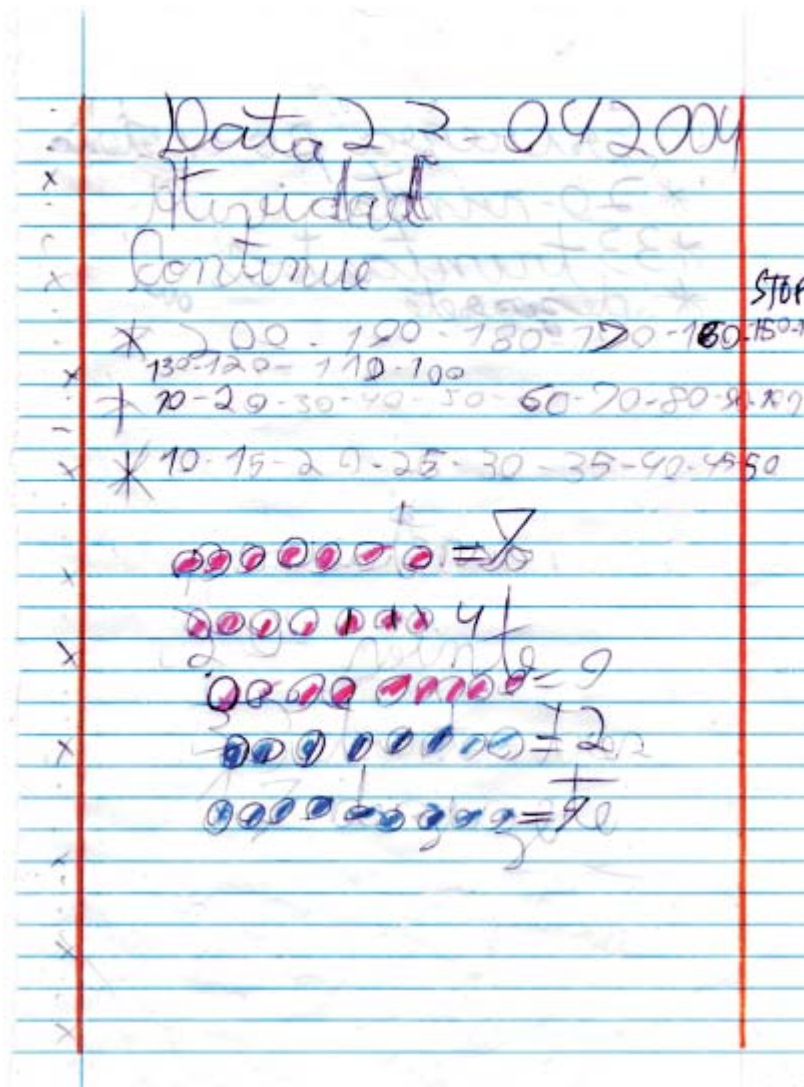 Data 22-042004
Atividad
Continue
STOP
* 200-190-180-170-160-150-
130-120-110-100
* 10-20-30-40-50-60-70-80-90-100
* 10-15-20-25-30-35-40-45-50
= 7
4
= 9
=
=